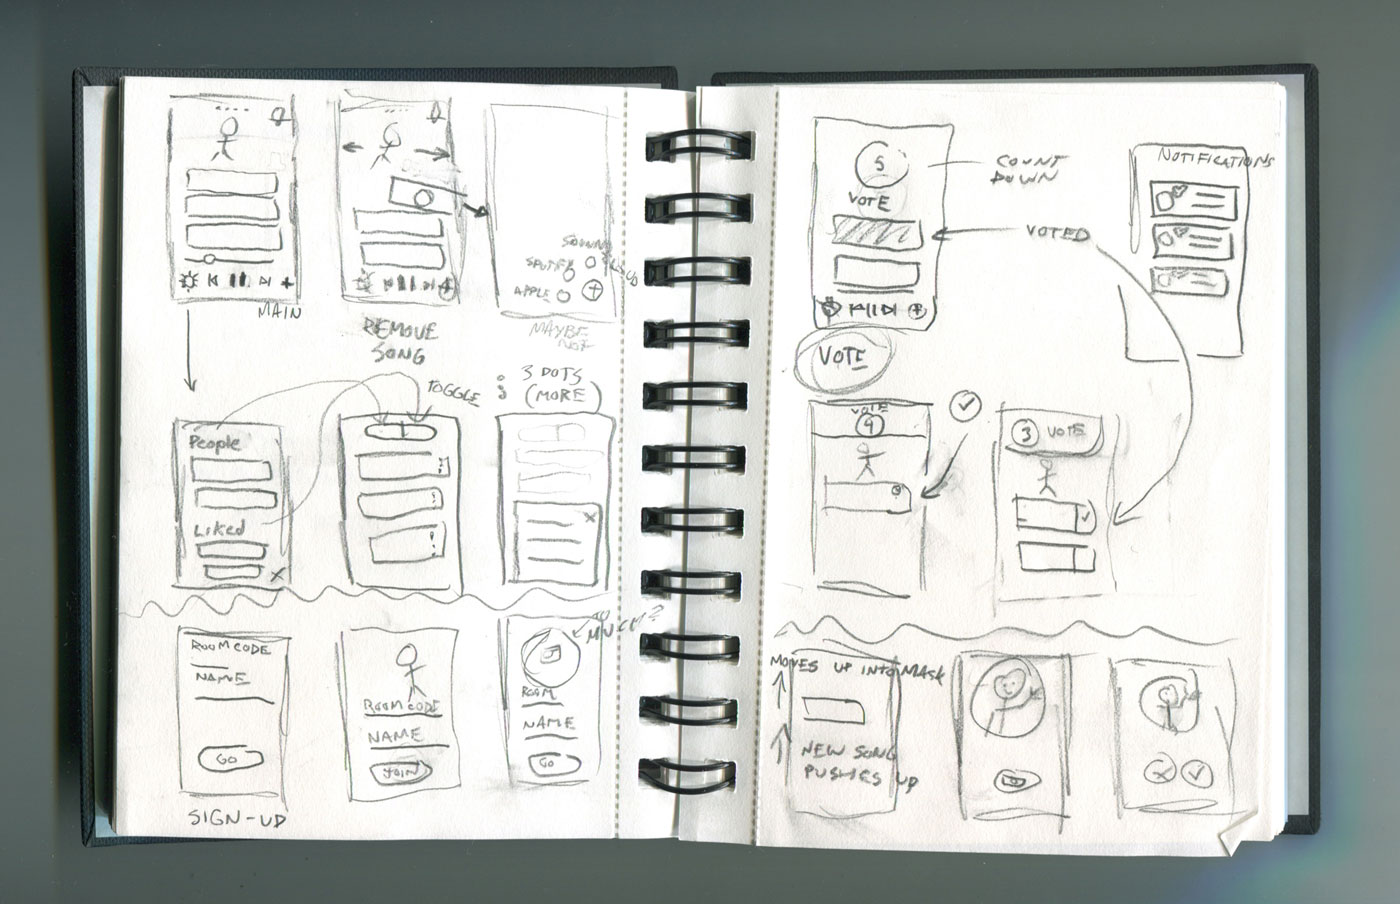 MAIN
REMOVE
SONG
SPOTIFY
APPLE
MAYBE
NOT
TOGGLE
3 DOTS
(MORE)
People
Liked
ROOM CODE
NAME
GO
SIGN-UP
ROOM CODE
NAME
JOIN
MUCH?
ROOM
NAME
GO
5
VOTE
COUNT
DOWN
VOTED
NOTIFICATIONS
VOTE
VOTE
4
3 VOTE
MOVES UP INTO MASK
NEW SONG
PUSHES UP